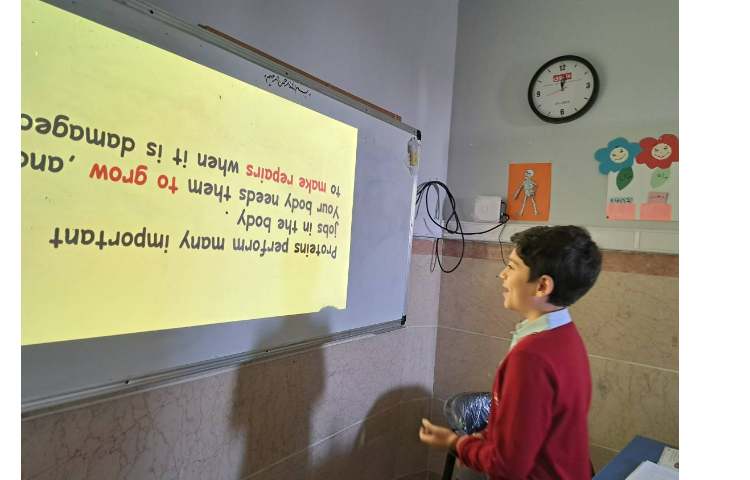 بسم الله الرحمن الرحیم
Proteins perform many important
jobs in the body.
Your body needs them to grow, and
to make repairs when it is damaged
12
3
6
9